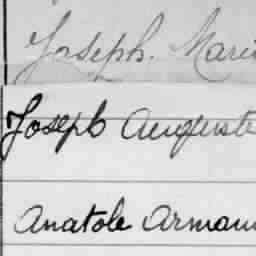 Joseph. Mari
Joseph Auguste
Anatole Arman